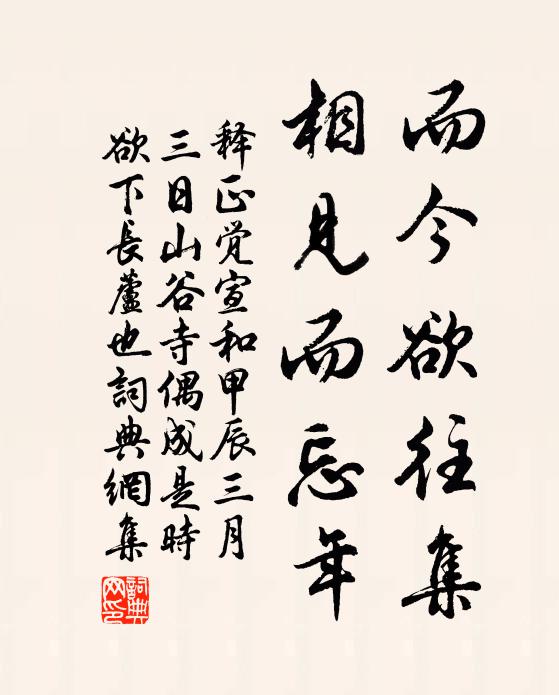 而今欲往集
相見而忘年
释正觉宣和甲辰三月
三日山谷寺偶成是時
欲下長蘆也詞典網集
詞典网印